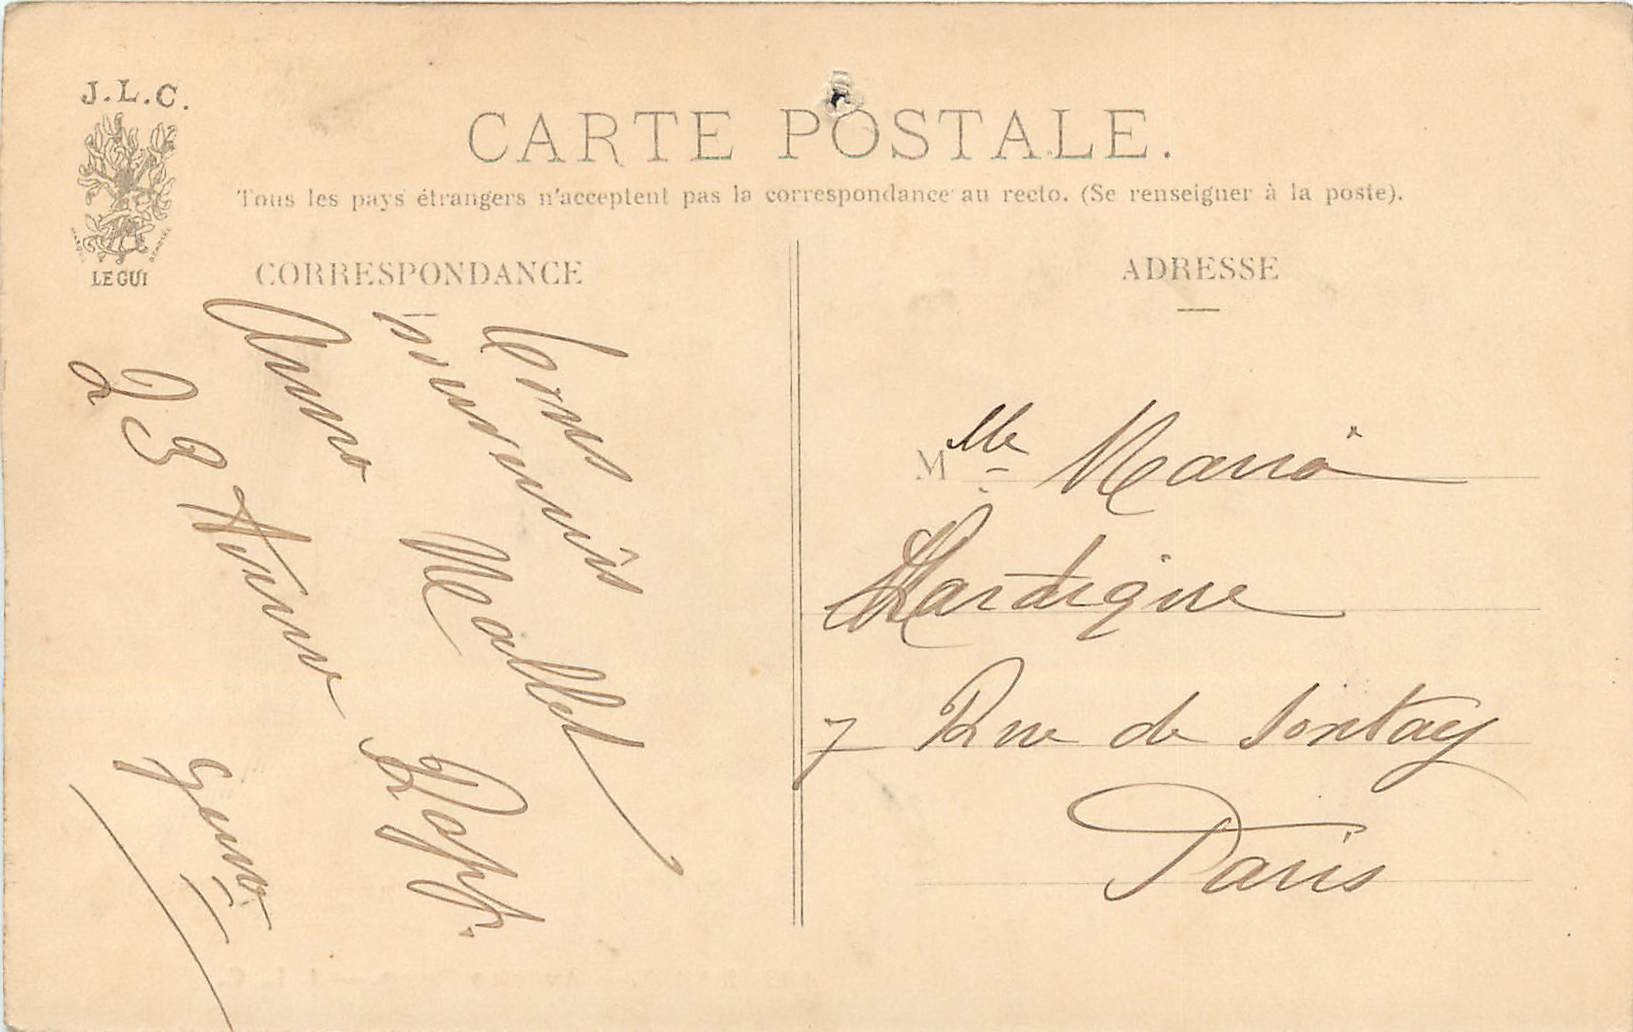 J.L.C.
LE GUI
CARTE POSTALE.
Tous les pays étrangers n'acceptent pas la correspondance au recto. (Se renseigner à la poste).
CORRESPONDANCE
Bons
souvenirs
Anna Mallet
23 Avenue Rapp.
ADRESSE
Mlle Maria
Hardique
7 Rue de Sontay
Paris